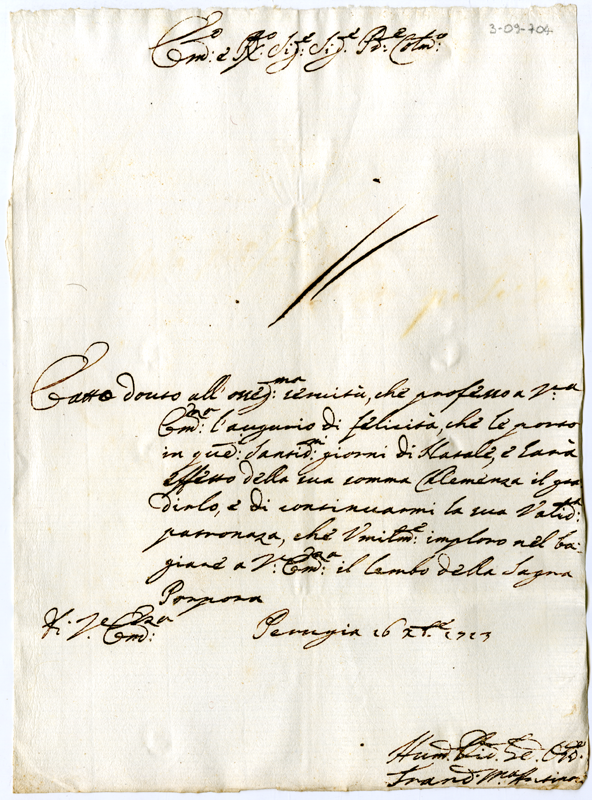 3-09-704
Em.o: e R.mo Sig.e Sig.e P.ne Col.mo:
È atto douto all'osseq.ma seruitù, che professo a V.ra
Em.za: l'augurio di felicità, che le porto
in que: Santis.mi: giorni di Natale, e sarà
effetto della sua somma Clemenza il gra
dirlo, e di continuarmi la sua Valid.ma:
patronanza, che Vmilm.e: imploro nel ba:
giare a V.ra Em.za: il lembo della Sagra
Porpora
Di V.ra Em.za:
Perugia 16 Xb.e 1713
Hum.